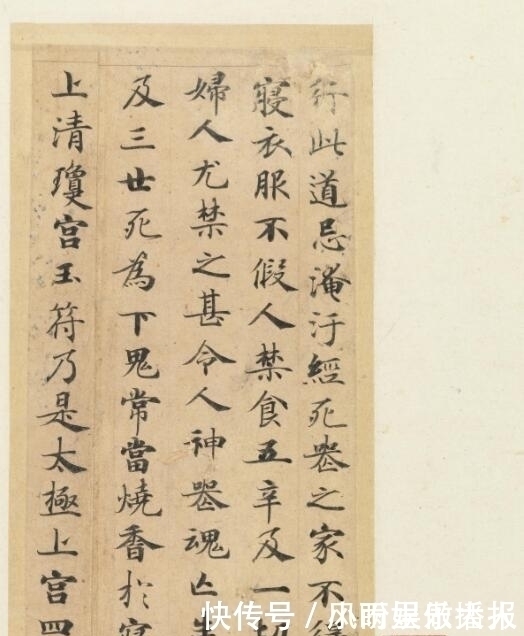 行此道忌淹汙經死喪之家不
寢衣服不假人禁食五辛及一
婦人尤禁之甚令人神喪魂亡
及三世死為下鬼常當燒香於
上清瓊宮玉符乃是太極上宮四
快传号 /